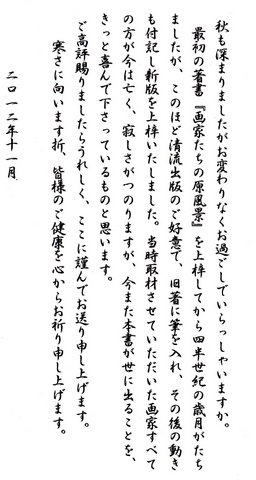 秋も深まりましたがお変わりなくお過ごしでいらっしゃいますか。
最初の著書『画家たちの原風景』を上梓してから四半世紀の歳月がたち
ましたが、このほど清流出版のご好意で、旧著に筆を入れ、その後の動き
も付記し新版を上梓いたしました。当時取材させていただいた画家すべて
の方が今は亡く、寂しさがつのりますが、今また本書が世に出ることを、
きっと喜んで下さっているものと思います。
ご高評賜りましたらうれしく、ここに謹んでお送り申し上げます。
寒さに向います折、皆様のご健康を心からお祈り申し上げます。
二〇一二年十一月